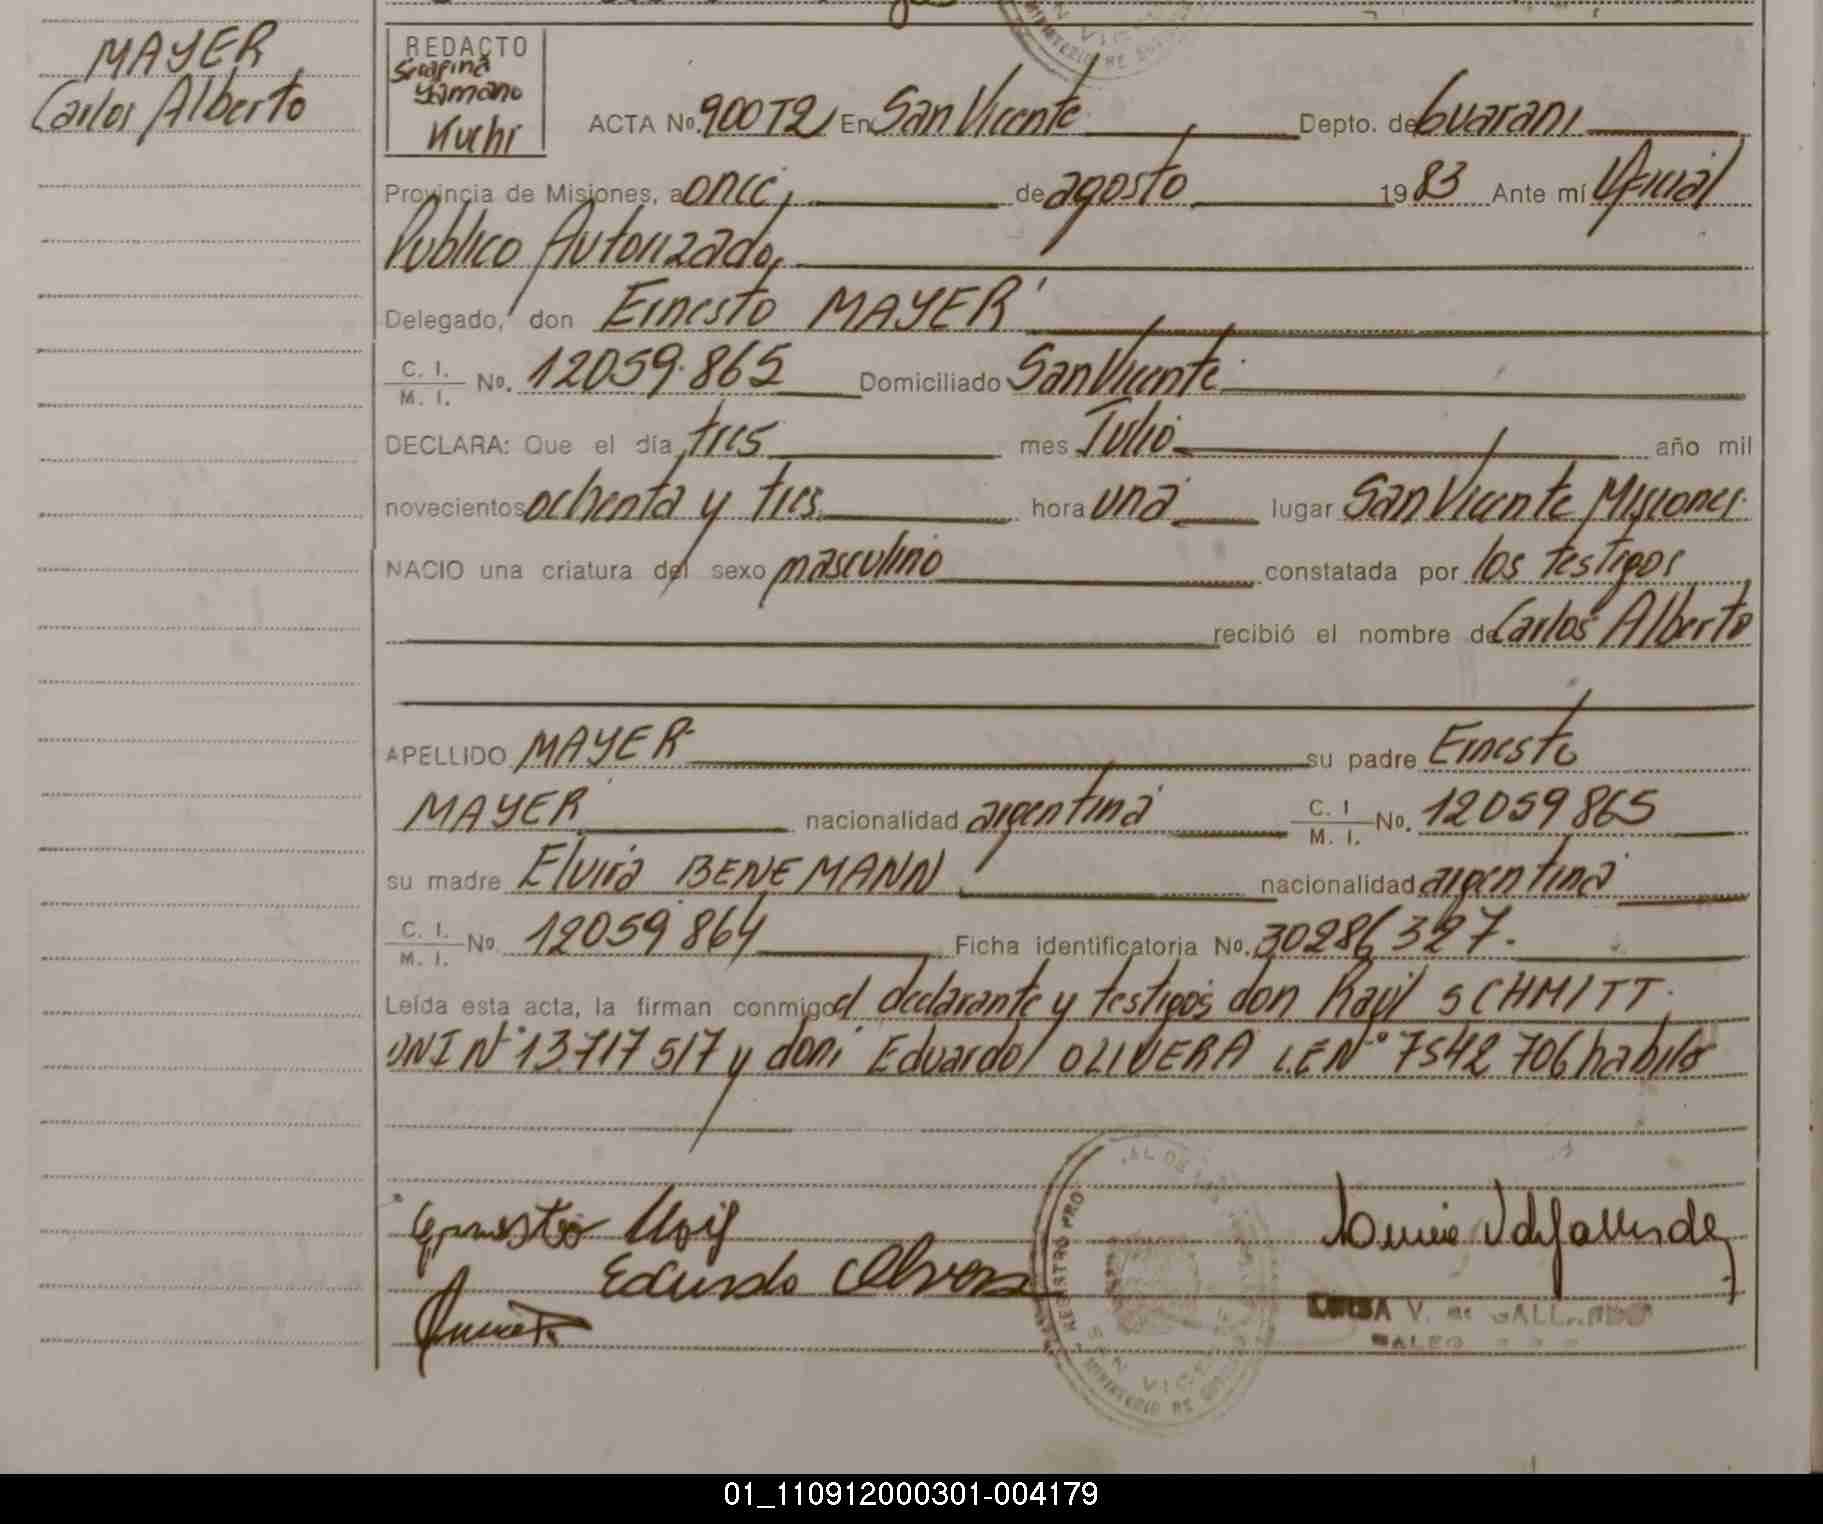 MAYER
Carlos Alberto
REDACTO
Serafina
Yamano
Kuchi
ACTA No. 900 T2 En San Vicente Depto. de Guarani
Provincia de Misiones, a once, de agosto 1983 Ante mí Oficial
Publico Autorizado,
Delegado, don Ernesto MAYER
C. I.
M. I. No. 12059.865 Domiciliado San Vicente
DECLARA: Que el día tres mes Julio año mil
novecientos ochenta y tres hora una lugar San Vicente Misiones
NACIO una criatura del sexo masculino constatada por los testigos
recibió el nombre de Carlos Alberto
APELLIDO MAYER su padre Ernesto
MAYER nacionalidad argentina C. I
M. I. No. 12059865
su madre Elvira BENEMANN nacionalidad argentina
C. I.
M. I. No. 12059864 Ficha identificatoria No. 30286327.
Leída esta acta, la firman conmigo el declarante y testigos don Raúl SCHMITT.
DNI N° 13.717517 y don Eduardo OLIVERA L.E N° 7542706 habiles
Eduardo Olivera
REGISTRO PRO
SAN VICENTE
MINISTERIO DE
LUISA V. de GALLARDO
01_110912000301-004179